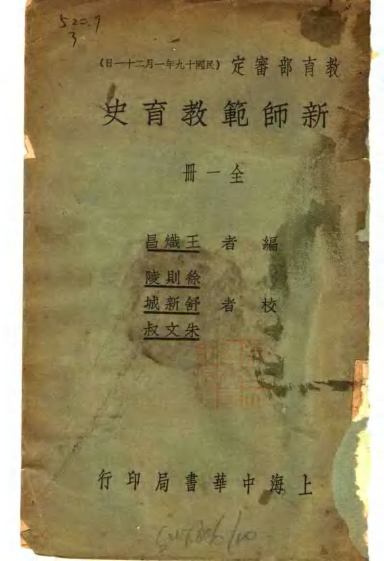 520.9
3
教育部審定（民國十九年一月二十一日）
新師範教育史
全一冊
編者 王熾昌
校者 徐則陵
舒新城
朱文叔
上海中華書局印行